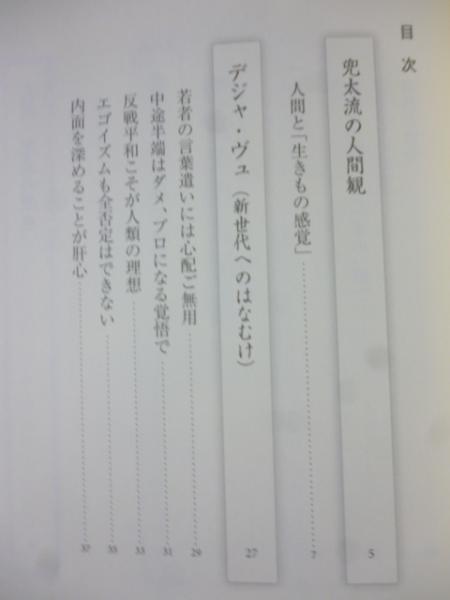 目次
兜太流の人間観 5
人間と「生きもの感覚」 7
デジャ・ヴュ（新世代へのはなむけ） 27
若者の言葉遣いには心配ご無用 29
中途半端はダメ、プロになる覚悟で 31
反戦平和こそが人類の理想 33
エゴイズムも全否定はできない 35
内面を深めることが肝心 37